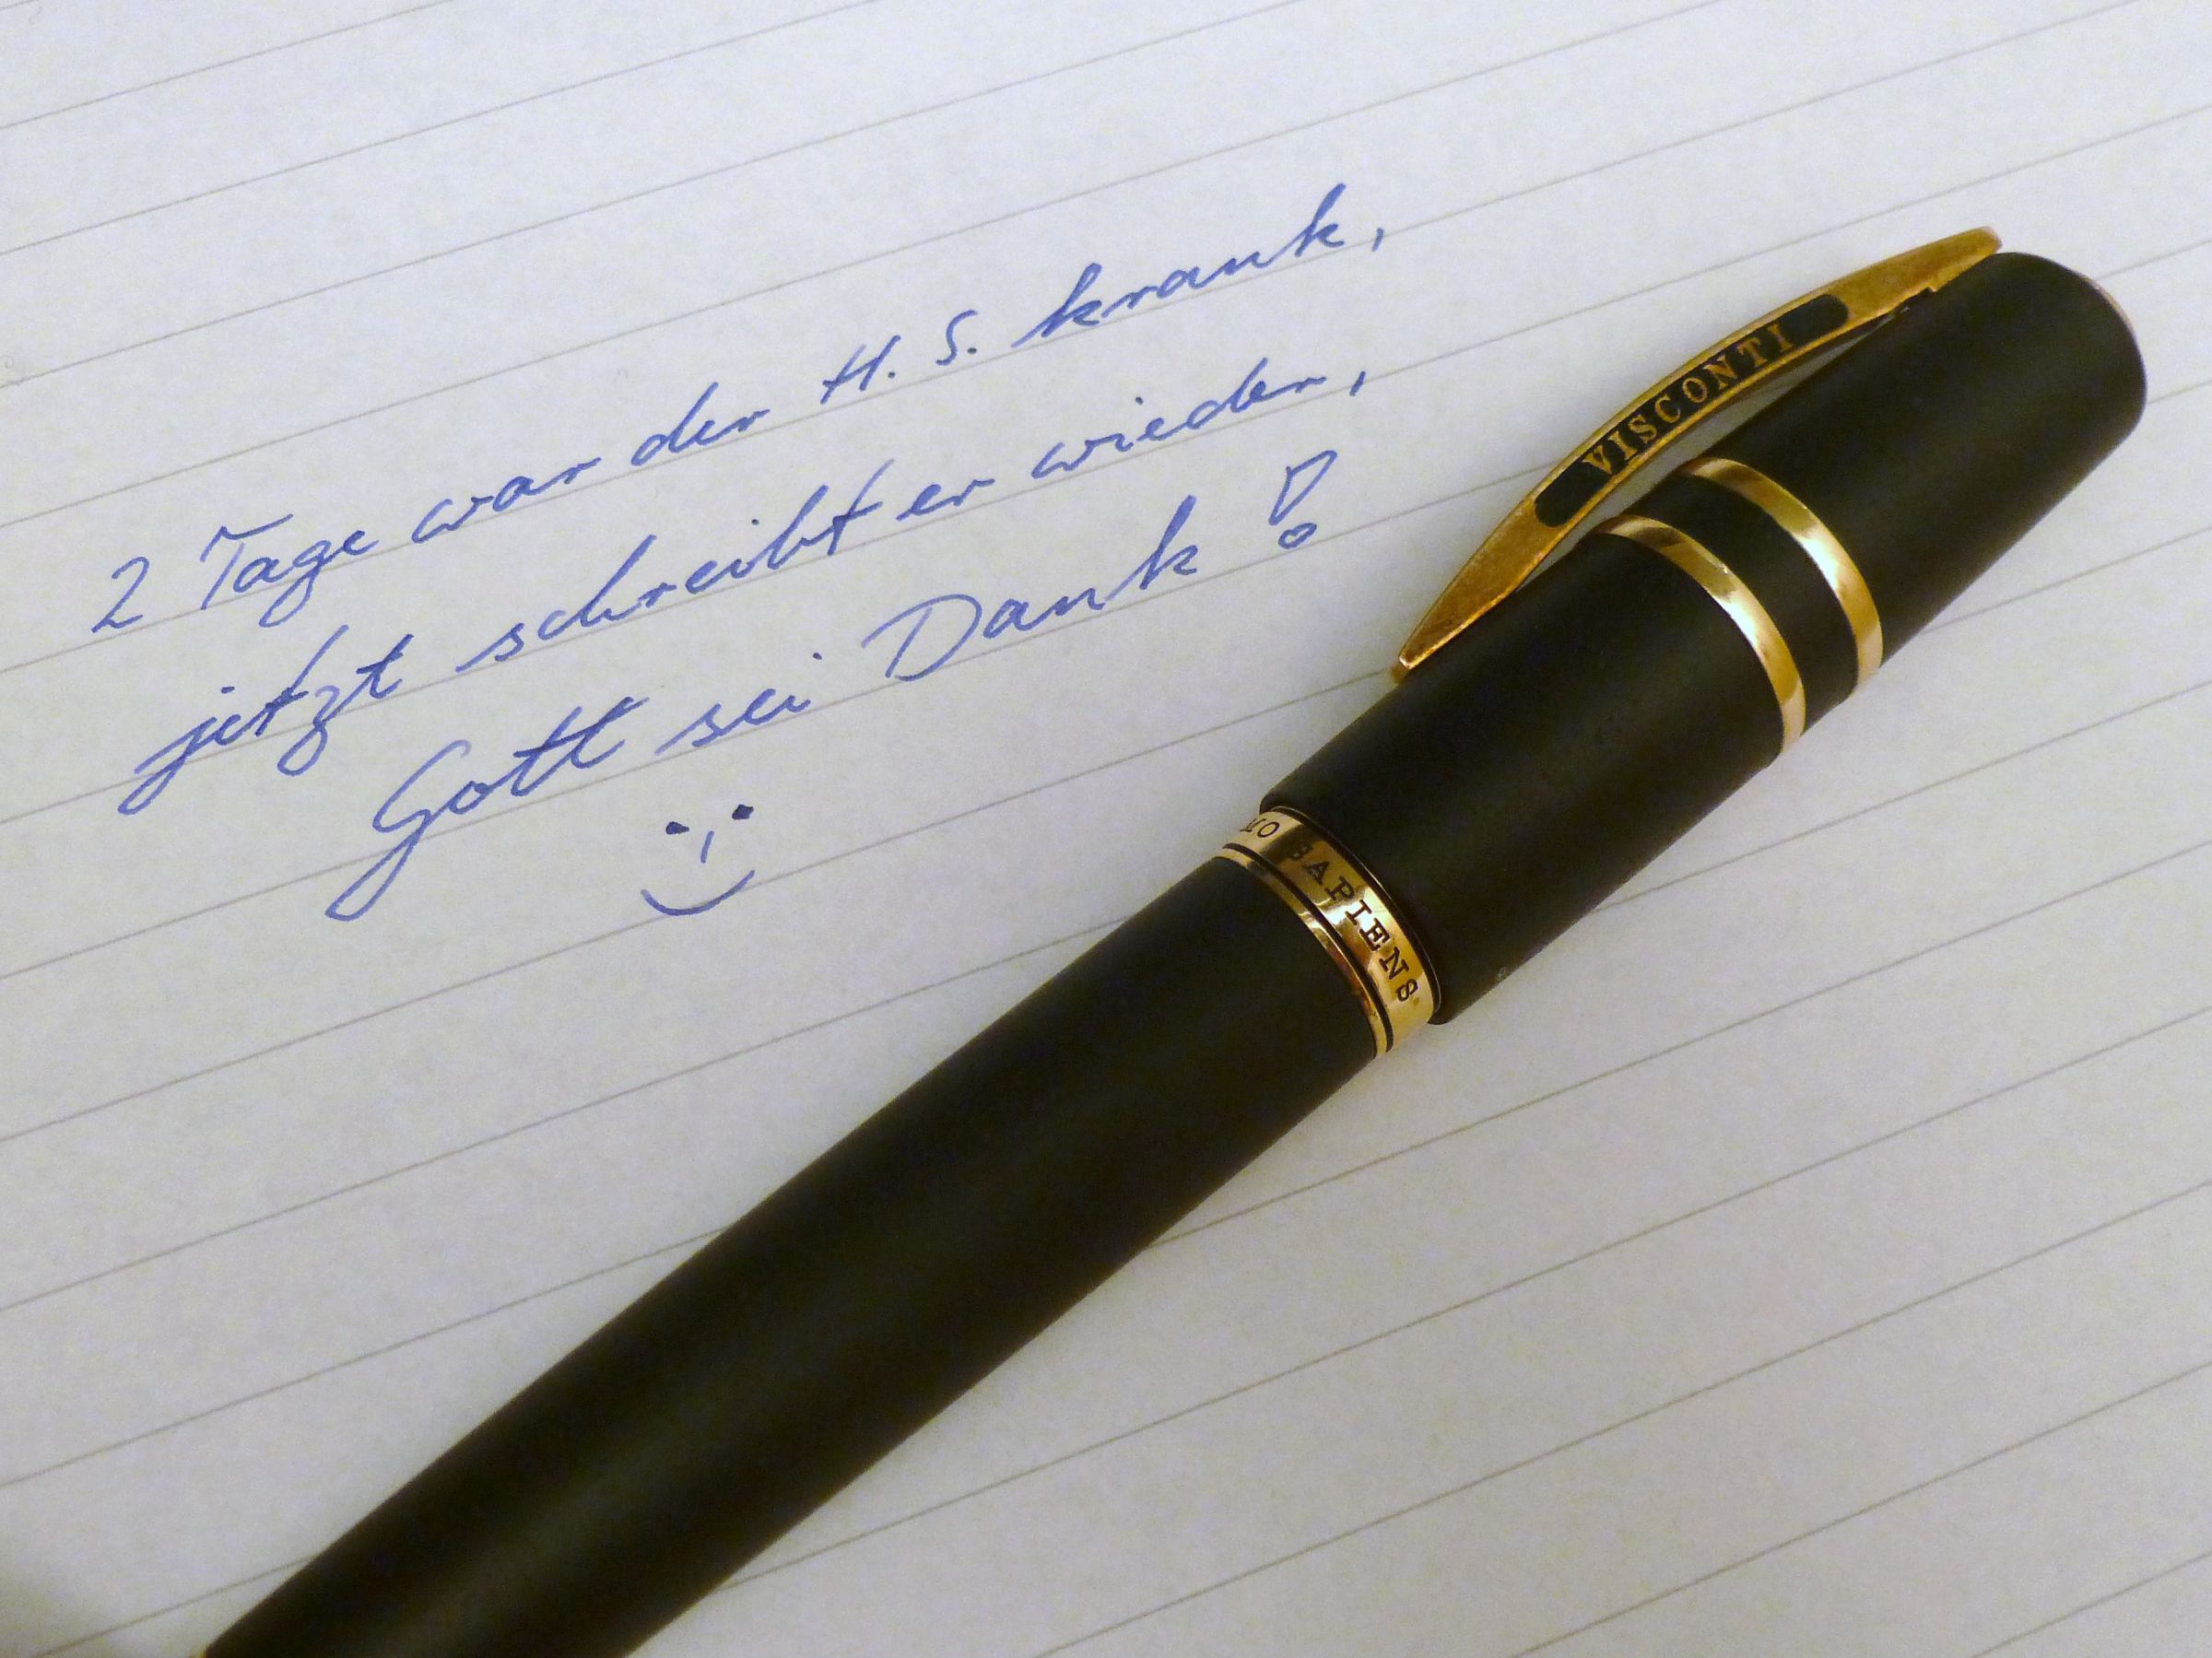 2 Tage war der H. S. krank,
jetzt schreibt er wieder,
Gott sei Dank!
VISCONTI
MO SAPIENS